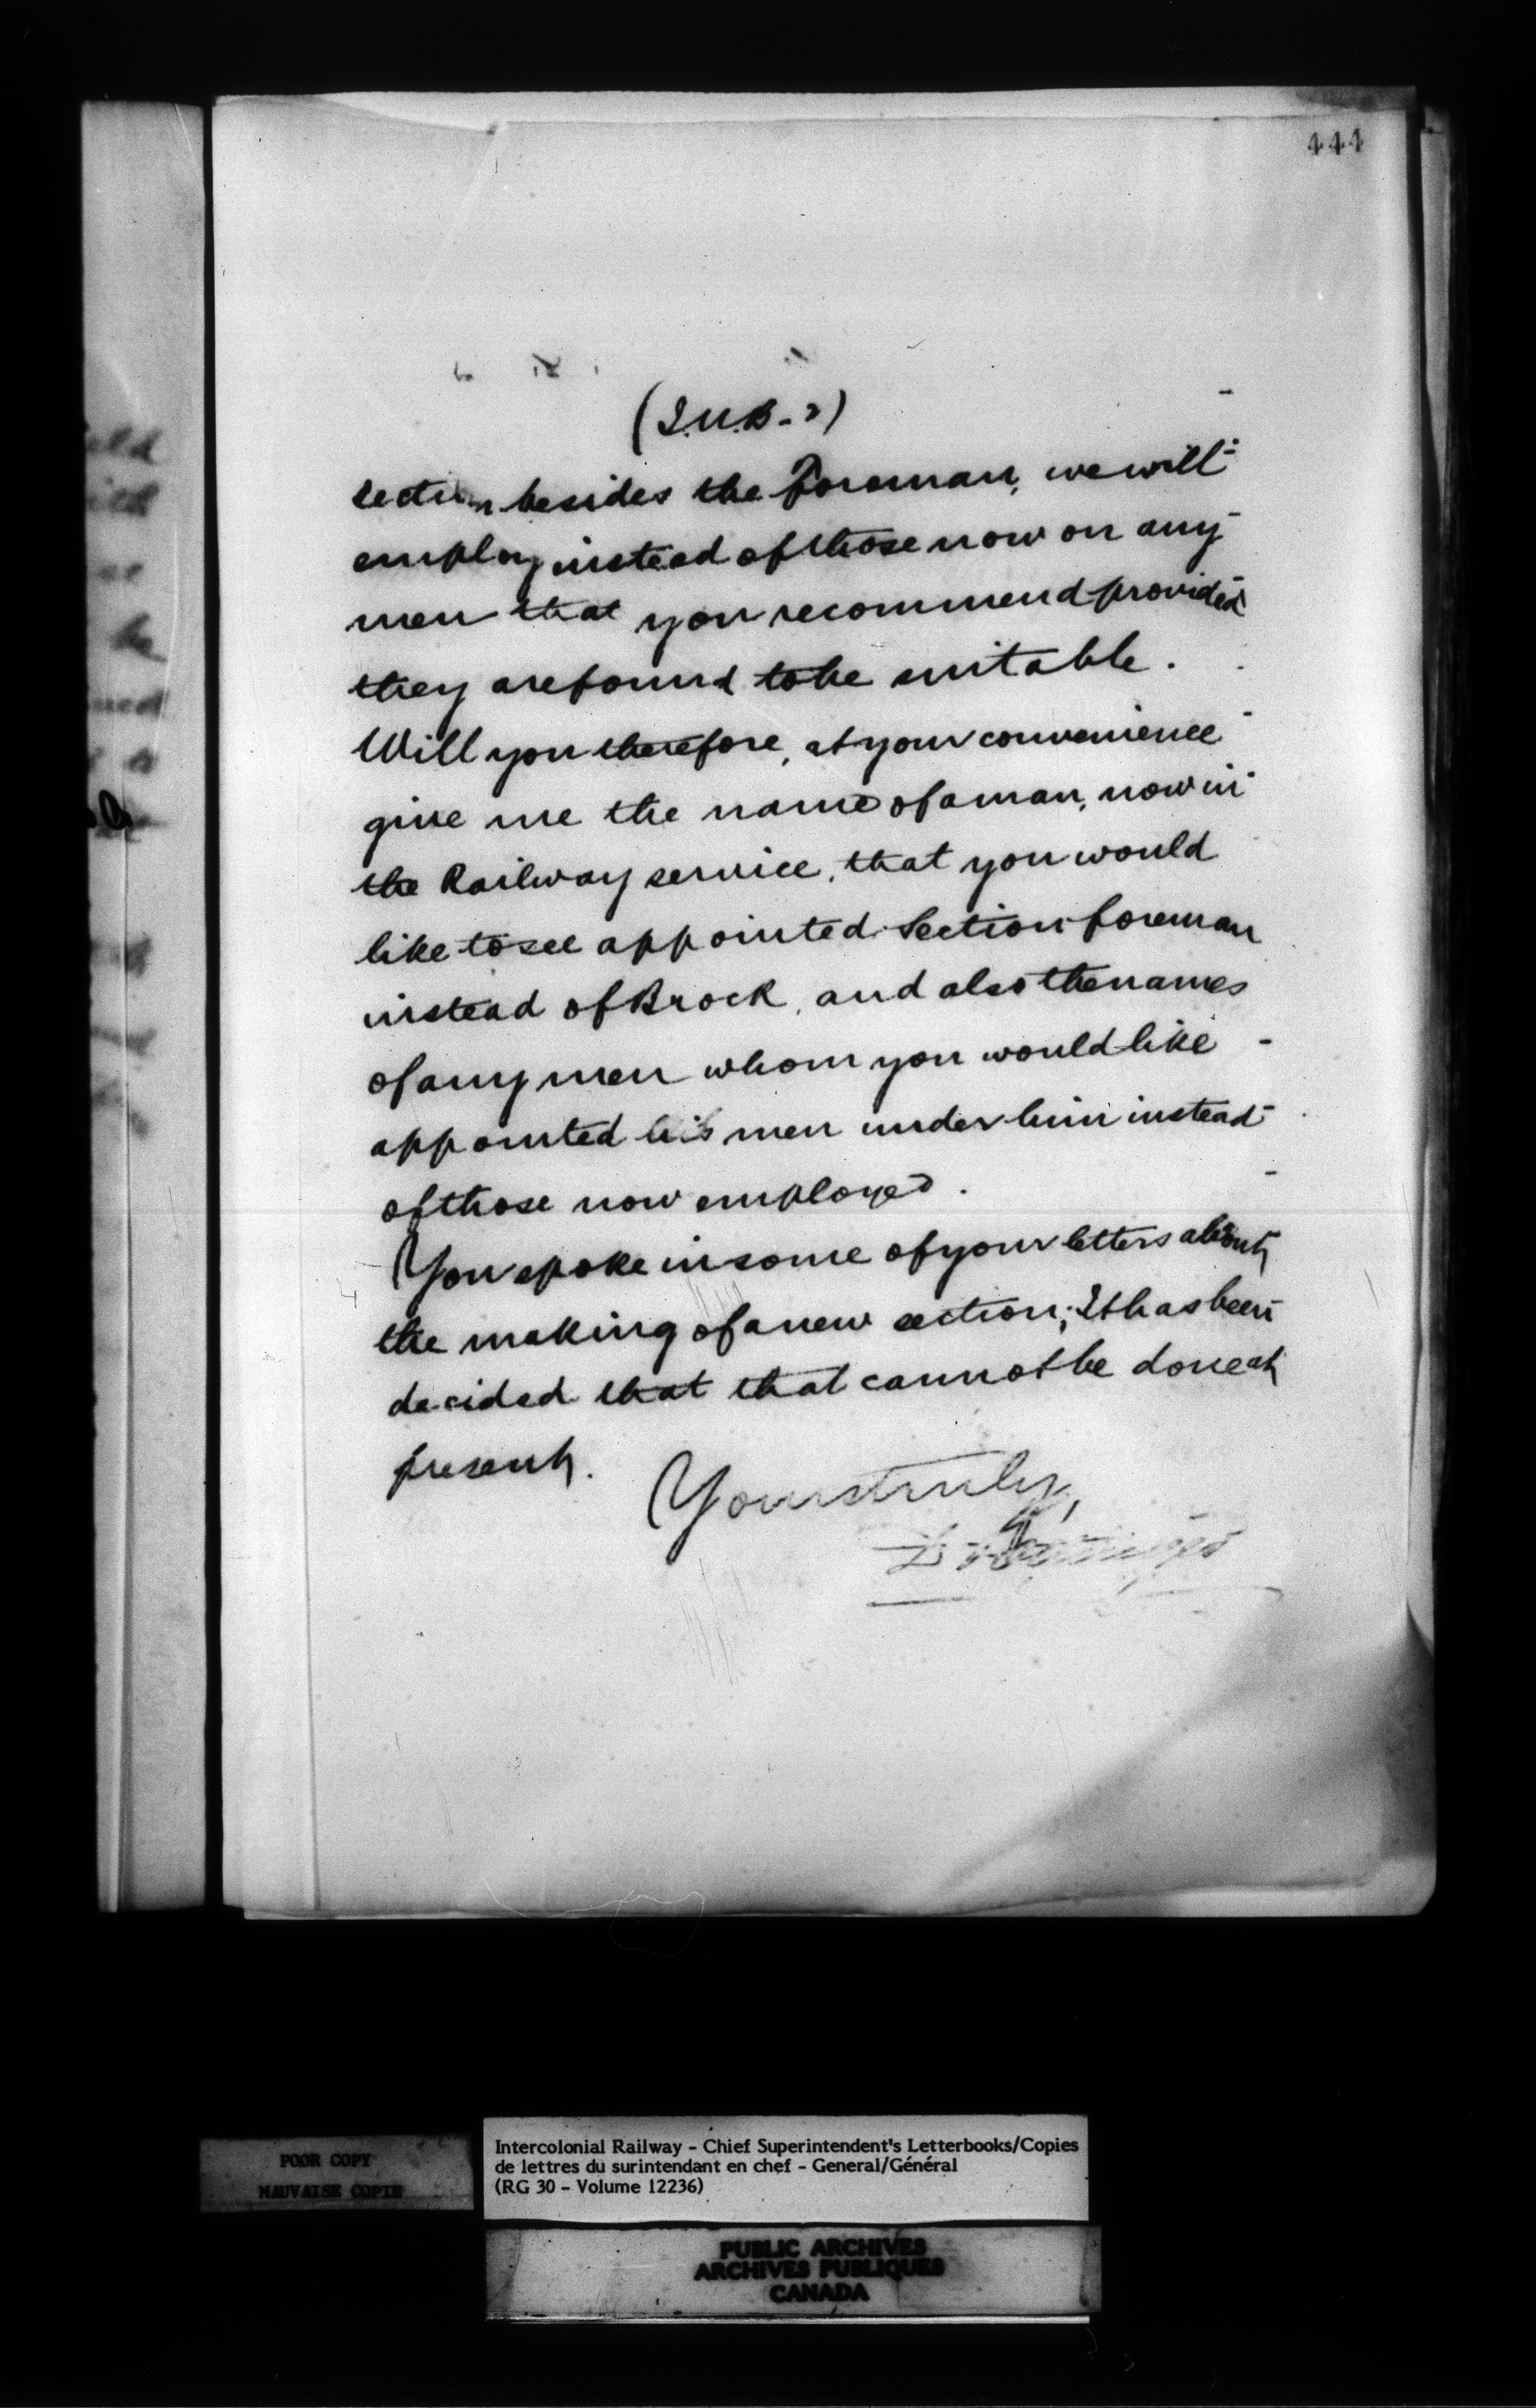 444
(J.U.B - 2)
section besides the Foreman, we will
employ instead of those now on any
men that you recommend provided
they are found to be suitable.
Will you therefore, at your convenience
give me the name of a man, now in
the Railway service, that you would
like to see appointed Section foreman
instead of Brock, and also the names
of any men whom you would like
appointed as men under him instead
of those now employed.
You spoke in some of your letters about
the making of a new section; It has been
decided that that cannot be done at
present.
Yours truly,
POOR COPY
MAUVAISE COPIE
Intercolonial Railway - Chief Superintendent's Letterbooks/Copies
de lettres du surintendant en chef - General/Général
(RG 30 - Volume 12236)
PUBLIC ARCHIVES
ARCHIVES PUBLIQUES
CANADA